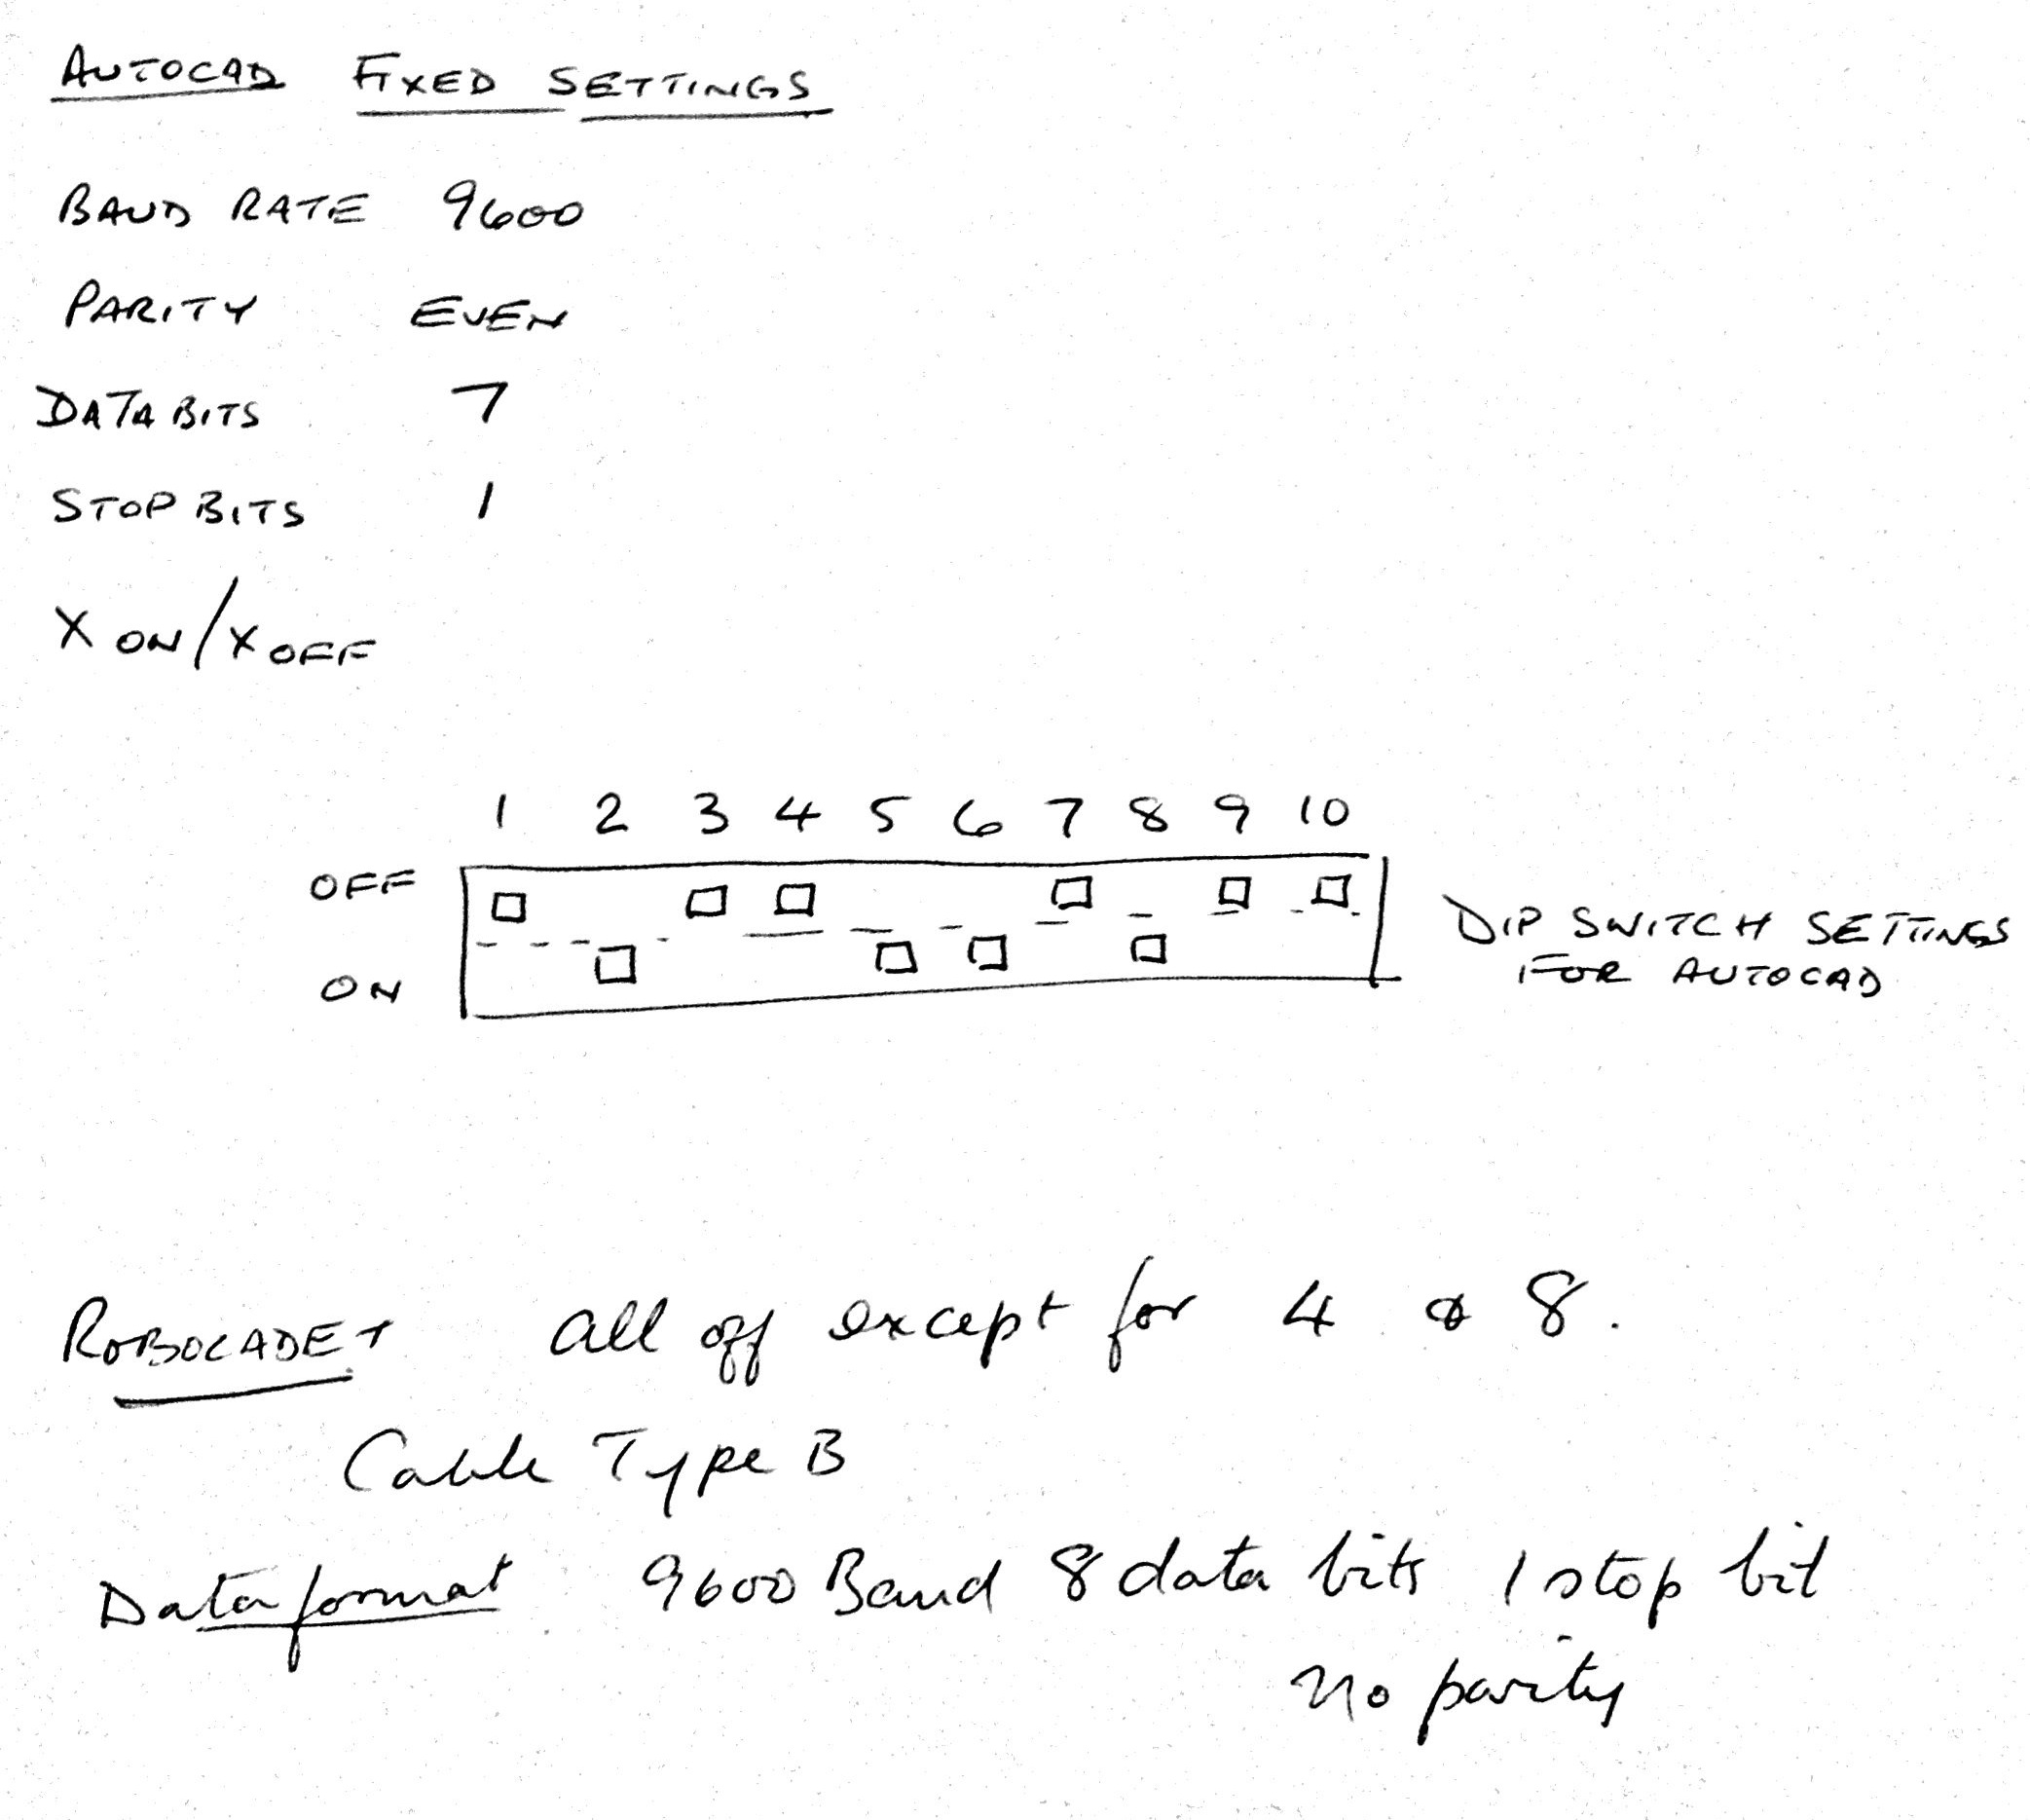 AUTOCAD FIXED SETTINGS
BAUD RATE 9600
PARITY EVEN
DATA BITS 7
STOP BITS 1
X ON/X OFF
1 2 3 4 5 6 7 8 9 10
OFF
ON
DIP SWITCH SETTINGS
FOR AUTOCAD
ROBOCADET all off except for 4 & 8.
Cable Type B
Data format 9600 Baud 8 data bits 1 stop bit
no parity